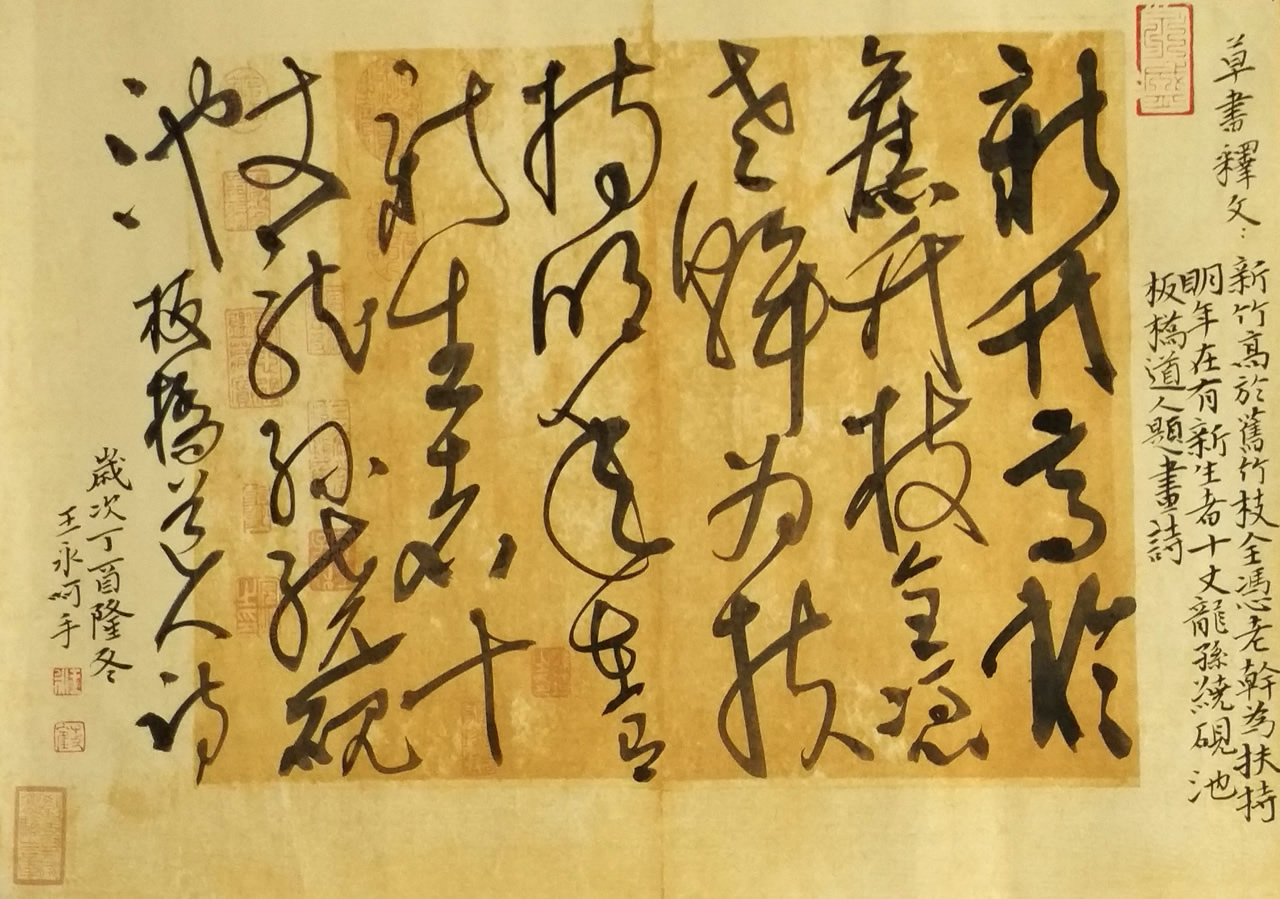 草書釋文：
新竹高於舊竹枝全馮老幹為扶持
明年在有新生者十丈龍孫繞硯池
板橋道人題畫詩
新竹高於
舊竹枝全馮
老幹為扶
持明年在有
新生者十
丈龍孫繞硯
池
板橋道人詩
歲次丁酉隆冬
王永呵手